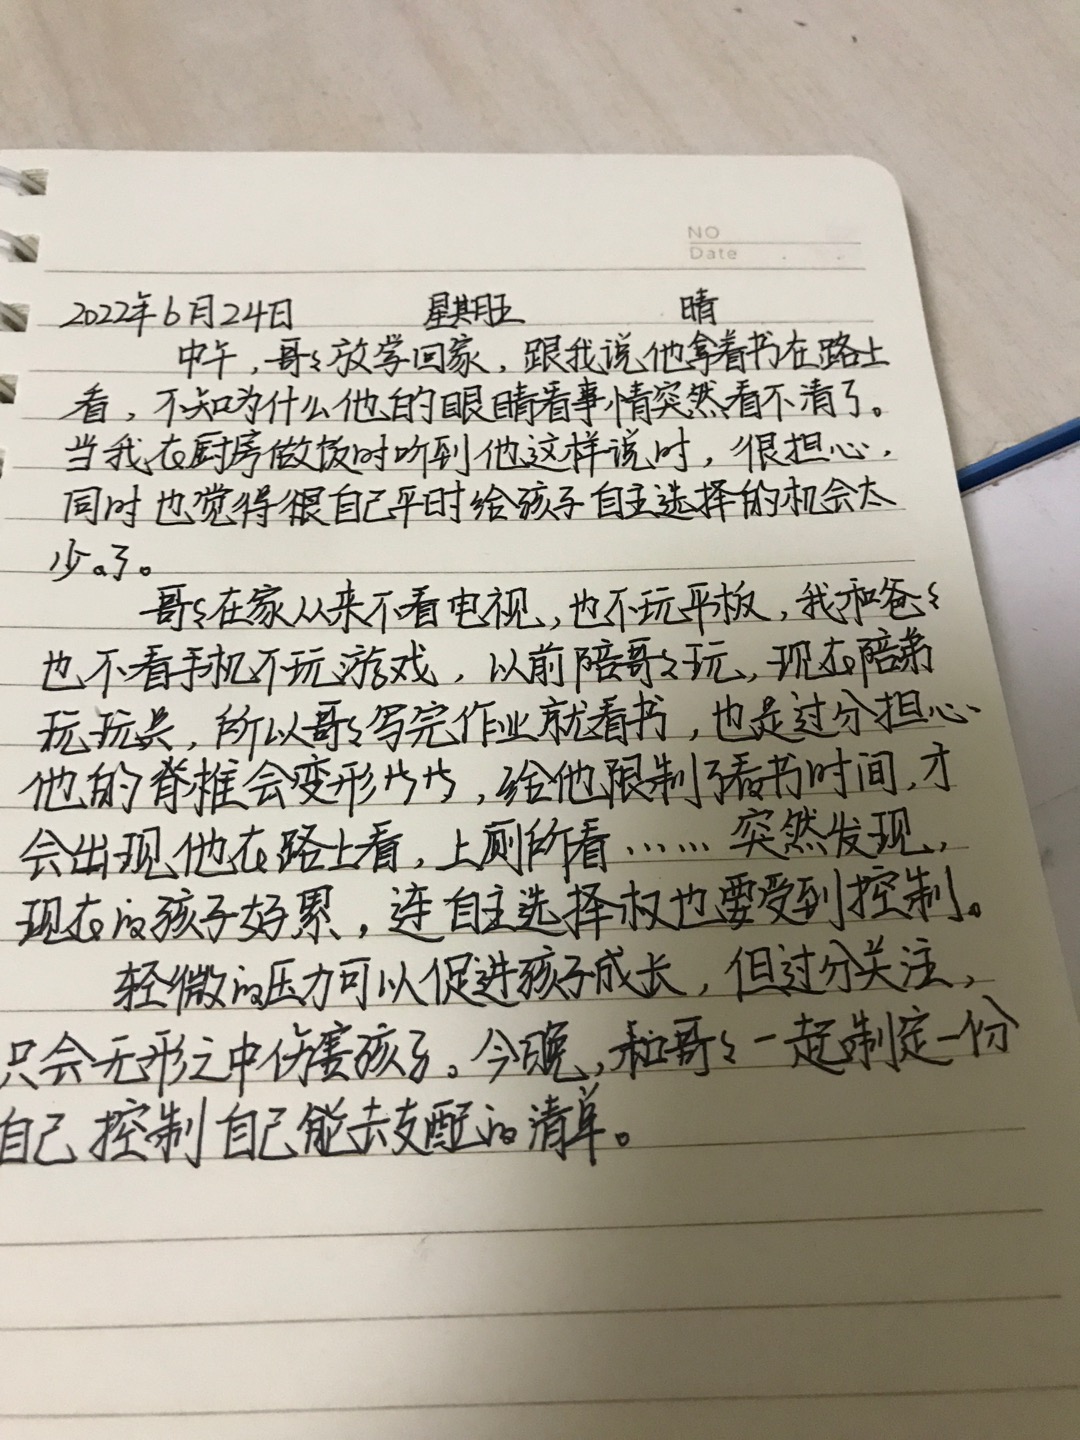 NO
Date
2022年6月24日 星期五 晴
中午，哥々放学回家，跟我说他拿着书在路上
看，不知为什么他的眼睛看事情突然看不清了。
当我在厨房做饭时听到他这样说时，很担心，
同时也觉得很自己平时给孩子自主选择的机会太
少。了。
哥々在家从来不看电视，也不玩平板，我和爸々
也不看手机不玩游戏，以前陪哥々玩，现在陪弟
玩玩具，所以哥々写完作业就看书，也是过分担心
他的脊椎会变形，给他限制了看书时间，才
会出现他在路上看，上厕所看……突然发现，
现在的孩子好累，连自主选择权也要受到控制。
轻微的压力可以促进孩子成长，但过分关注，
只会无形之中伤害孩子。今晚，和哥々一起制定一份
自己控制自己能去支配的清单。